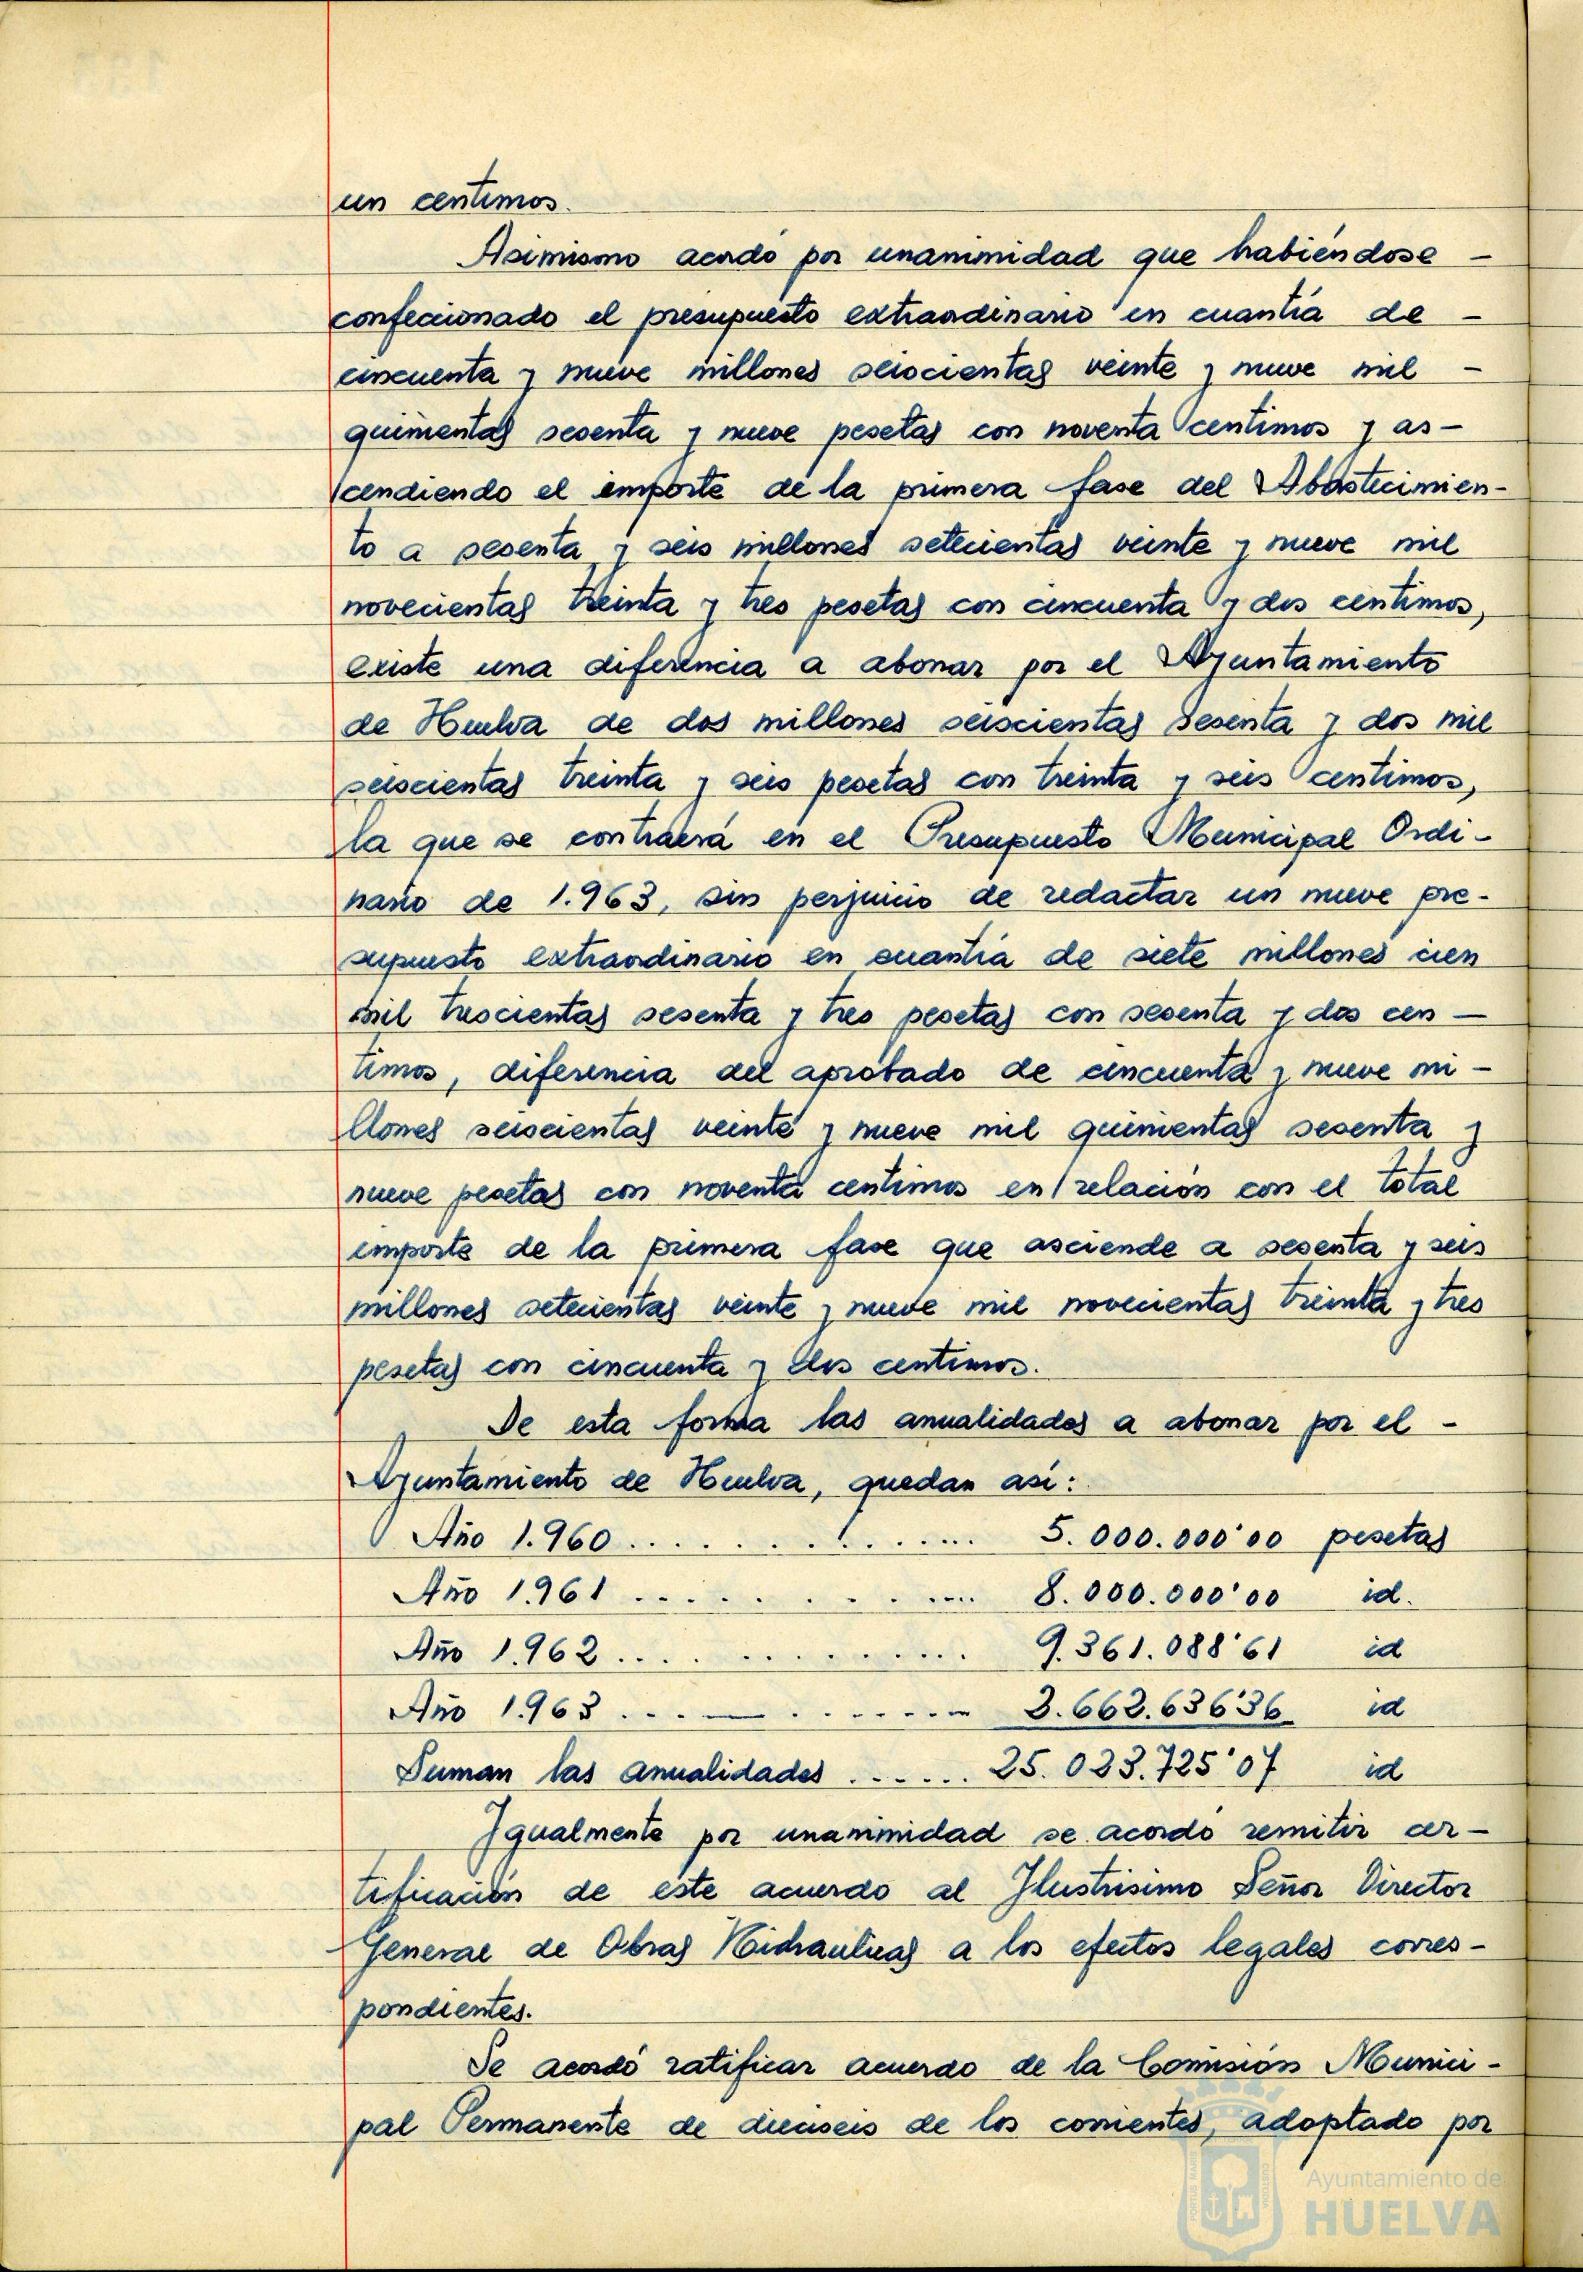 un centimos.
Asimismo acordó por unanimidad que habiéndose -
confeccionado el presupuesto extraordinario en cuantía de -
cincuenta y nueve millones seiscientas veinte y nueve mil -
quinientas sesenta y nueve pesetas con noventa centimos y as-
cendiendo el importe de la primera fase del Abastecimien-
to a sesenta y seis millones setecientas veinte y nueve mil
novecientas treinta y tres pesetas con cincuenta y dos centimos,
existe una diferencia a abonar por el Ayuntamiento
de Huelva de dos millones seiscientas sesenta y dos mil
seiscientas treinta y seis pesetas con treinta y seis centimos,
la que se contraerá en el Presupuesto Municipal Ordi-
nario de 1.963, sin perjuicio de redactar un nueve pre-
supuesto extraordinario en cuantía de siete millones cien
mil trescientas sesenta y tres pesetas con sesenta y dos cen-
timos, diferencia del aprobado de cincuenta y nueve mi-
llones seiscientas veinte y nueve mil quinientas sesenta y
nueve pesetas con noventa centimos en relación con el total
importe de la primera fase que asciende a sesenta y seis
millones setecientas veinte y nueve mil novecientas treinta y tres
pesetas con cincuenta y dos centimos.
De esta forma las anualidades a abonar por el -
Ayuntamiento de Huelva, quedan así:
Año 1.960 ................ 5.000.000'00 pesetas
Año 1.961 ................ 8.000.000'00 id.
Año 1.962 ................ 9.361.088'61 id
Año 1.963 ................ 2.662.636'36 id
Suman las anualidades ...... 25.023.725'07 id
Igualmente por unanimidad se acordó remitir cer-
tificación de este acuerdo al Ilustrisimo Señor Director
General de Obras Hidraulicas a los efectos legales corres-
pondientes.
Se acordó ratificar acuerdo de la Comisión Munici-
pal Permanente de dieciseis de los corrientes, adoptado por
PORTUS MARIS
CUSTODIA
Ayuntamiento de
HUELVA